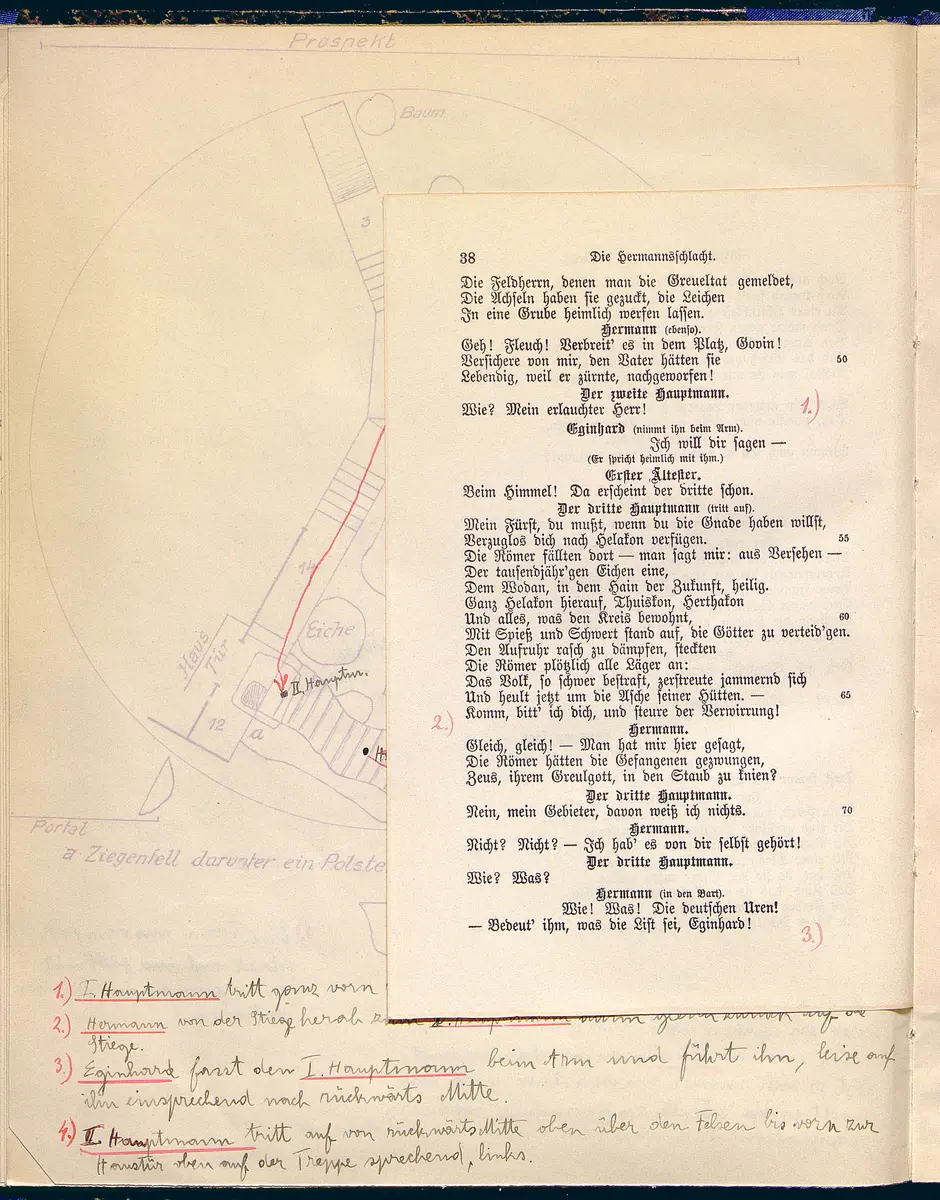 Prospekt
Baum
3
14
Eiche
Haus
Tür
II. Hauptm.
12
a
H
Portal
a Ziegenfell darunter ein Polste
38 Die Hermannsſchlacht.
Die Feldherrn, denen man die Greueltat gemeldet,
Die Achſeln haben ſie gezuckt, die Leichen
In eine Grube heimlich werfen laſſen.
Hermann (ebenſo).
Geh! Fleuch! Verbreit' es in dem Platz, Govin!
Verſichere von mir, den Vater hätten ſie 50
Lebendig, weil er zürnte, nachgeworfen!
Der zweite Hauptmann.
Wie? Mein erlauchter Herr! 1.)
Eginhard (nimmt ihn beim Arm).
Ich will dir ſagen —
(Er ſpricht heimlich mit ihm.)
Erſter Älteſter.
Beim Himmel! Da erſcheint der dritte ſchon.
Der dritte Hauptmann (tritt auf).
Mein Fürſt, du mußt, wenn du die Gnade haben willſt,
Verzuglos dich nach Helakon verfügen. 55
Die Römer fällten dort — man ſagt mir: aus Verſehen —
Der tauſendjähr'gen Eichen eine,
Dem Wodan, in dem Hain der Zukunft, heilig.
Ganz Helakon hierauf, Thuiskon, Herthakon
Und alles, was den Kreis bewohnt, 60
Mit Spieß und Schwert ſtand auf, die Götter zu verteid'gen.
Den Aufruhr raſch zu dämpfen, ſteckten
Die Römer plötzlich alle Läger an:
Das Volk, ſo ſchwer beſtraft, zerſtreute jammernd ſich
Und heult jetzt um die Aſche ſeiner Hütten. — 65
Komm, bitt' ich dich, und ſteure der Verwirrung!
2.) Hermann.
Gleich, gleich! — Man hat mir hier geſagt,
Die Römer hätten die Gefangenen gezwungen,
Zeus, ihrem Greulgott, in den Staub zu knien?
Der dritte Hauptmann.
Nein, mein Gebieter, davon weiß ich nichts. 70
Hermann.
Nicht? Nicht? — Ich hab' es von dir ſelbſt gehört!
Der dritte Hauptmann.
Wie? Was?
Hermann (in den Bart).
Wie! Was! Die deutſchen Uren!
— Bedeut' ihm, was die Liſt ſei, Eginhard!
3.)
1.) I. Hauptmann tritt ganz vorn
2.) Hermann von der Stiege herab auf die
Stiege.
3.) Eginhard fasst den I. Hauptmann beim Arm und führt ihn, leise auf
ihn einsprechend nach rückwärts Mitte.
4.) II. Hauptmann tritt auf von rückwärts Mitte oben über den Felsen bis vorn zur
Haustür oben auf der Treppe sprechend, links.